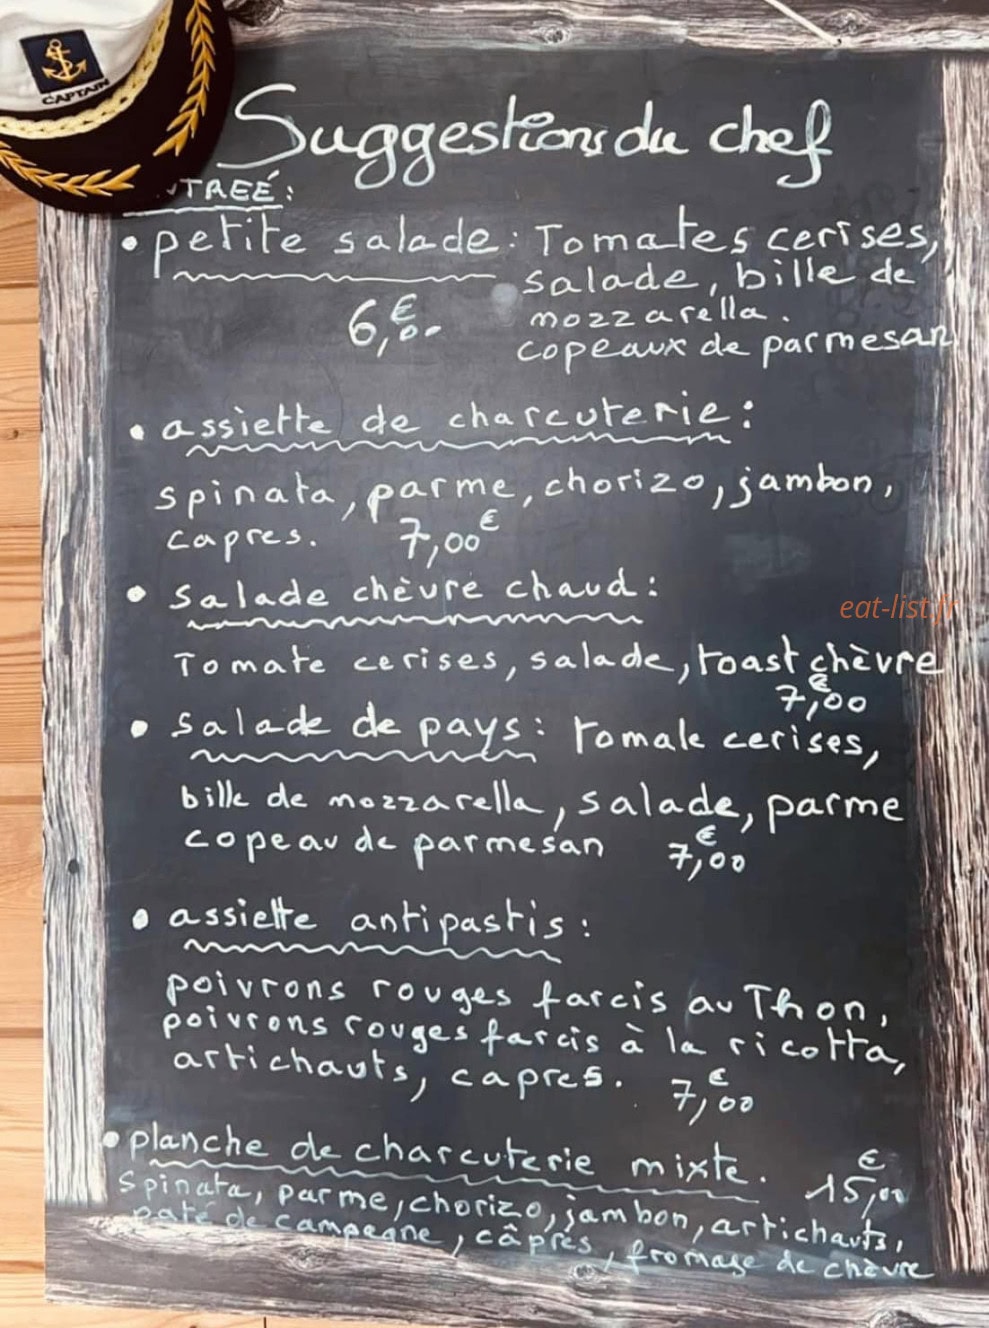 CAPTAIN
Suggestions du chef
TREÉ:
• petite salade: Tomates cerises,
salade, bille de
mozzarella.
6,00€
copeaux de parmesan
• assiette de charcuterie:
spinata, parme, chorizo, jambon,
capres. 7,00€
• salade chèvre chaud:
Tomate cerises, salade, toast chèvre
7,00€
• salade de pays: tomate cerises,
bille de mozzarella, salade, parme
copeau de parmesan 7,00€
• assiette antipastis:
poivrons rouges farcis au Thon,
poivrons rouges farcis à la ricotta,
artichauts, capres. 7,00€
• planche de charcuterie mixte. 15,00€
spinata, parme, chorizo, jambon, artichauts,
paté de campagne, câpres, fromage de chèvre
eat-list.fr